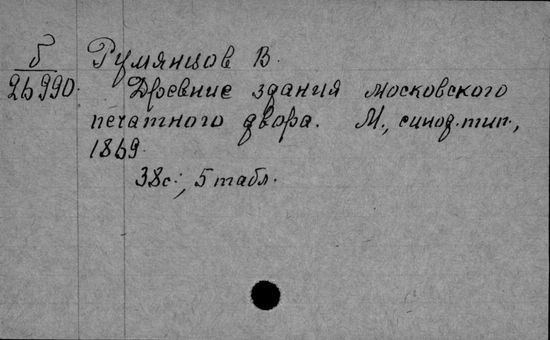 б Румянцов В.
26990. Древние здания московского
печатного двора. М., синод.тип.,
1869.
38с., 5 табл.